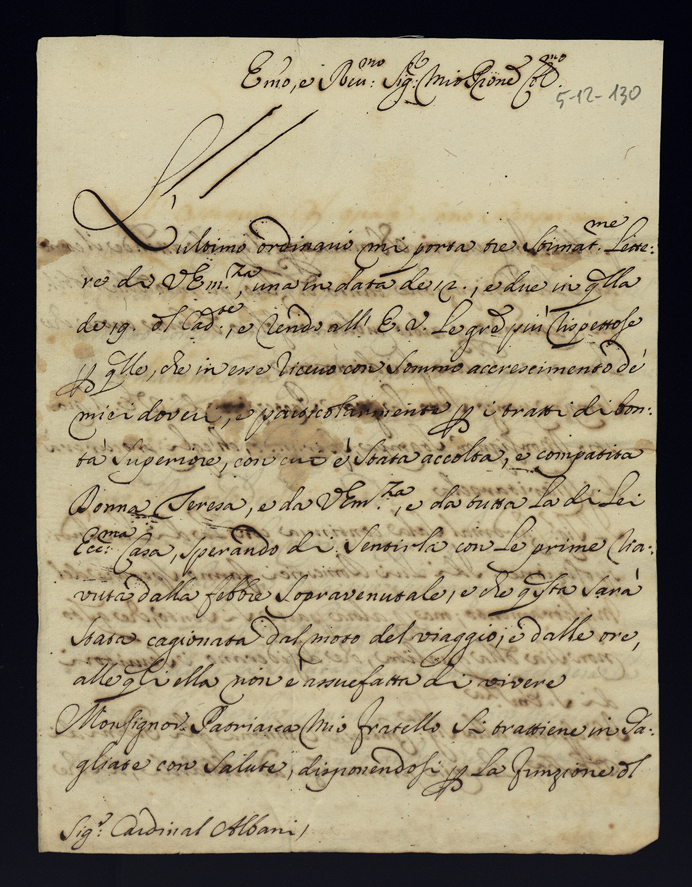 Emo, e Rev:mo Sig:re Mio P̃rone Col:mo
5-12-130
L'ultimo ordinario mi porta tre Stimat.me Lette:
re da VEm.za, una in data de 12., e due in q̃lla
de 19. del Cad.te, e rendo all' E. V. Le grẽ più rispettose
p q̃lle, che in esse ricevo con Sommo accrescimento de'
miei doveri, e particolarmente p i tratti di bon-
tà Superiore, con cui è Stata accolta, e compatita
Donna Teresa, e da VEm.za, e da tutta La di Lei
Ecc:ma Casa, sperando di Sentirla con Le prime ria-
vuta dalla febbre Sopravenutale, e che q̃sta sarà
Stata cagionata dal moto del viaggio, e dalle ore,
alle q̃li ella non è assuefatta di vivere
Monsignor Patriarca Mio fratello Si trattiene in Ga-
gliate con Salute, disponendosi p La funzione del
Sig.r Cardinal Albani